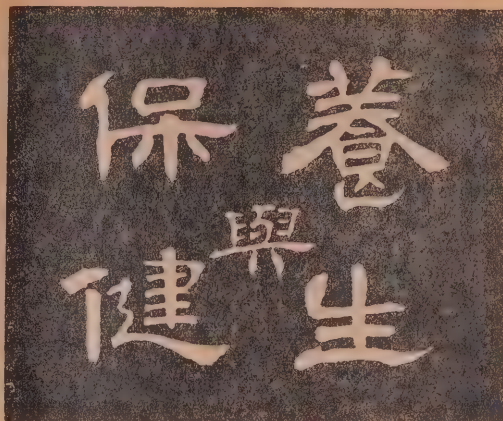 養生
與
保健